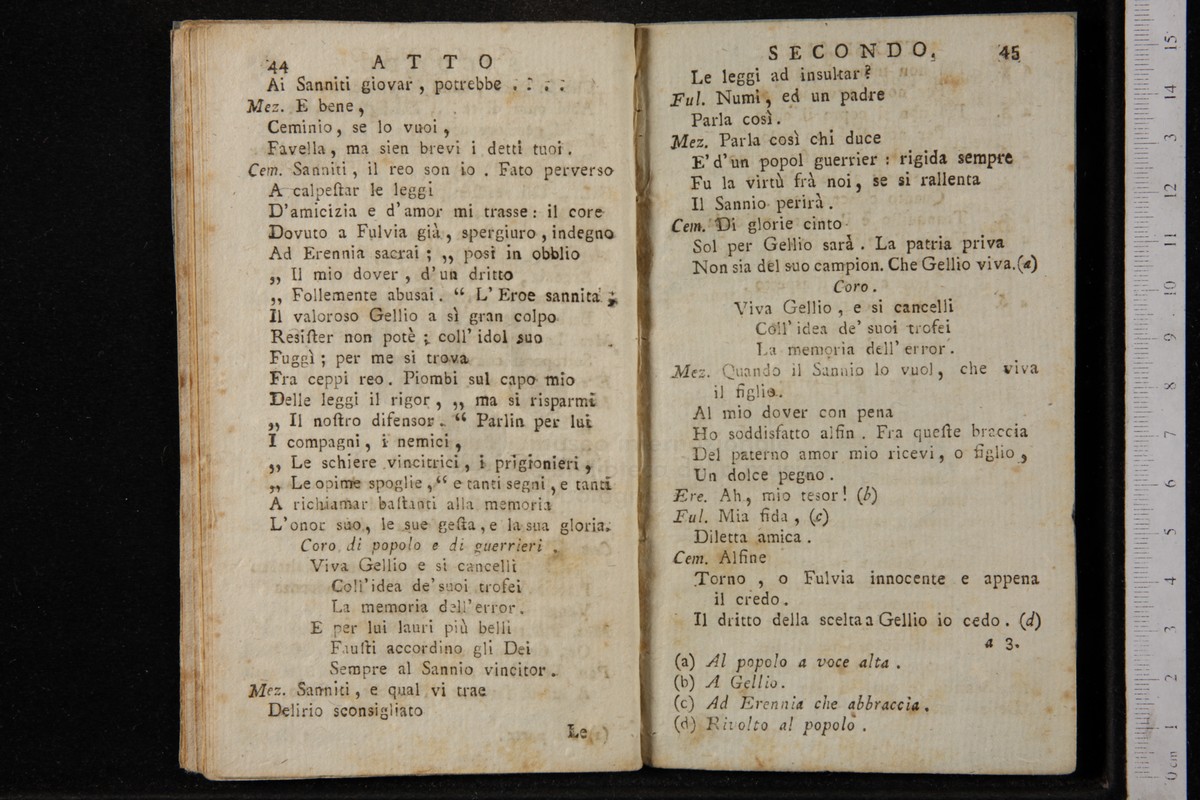 44 ATTO
Ai Sanniti giovar, potrebbe . : . :
Mez. E bene,
Ceminio, se lo vuoi,
Favella, ma sien brevi i detti tuoi.
Cem. Sanniti, il reo son io. Fato perverso
A calpeſtar le leggi
D'amicizia e d'amor mi trasse: il core
Dovuto a Fulvia già, spergiuro, indegno
Ad Erennia sacrai; „ posi in obblio
„ Il mio dover, d'un dritto
„ Follemente abusai. “ L'Eroe sannita;
Il valoroso Gellio a sì gran colpo
Resiſter non potè; coll'idol suo
Fuggì; per me si trova
Fra ceppi reo. Piombi sul capo mio
Delle leggi il rigor, „ ma si risparmi
„ Il noſtro difensor. “ Parlin per lui
I compagni, i nemici,
„ Le schiere vincitrici, i prigionieri,
„ Le opime spoglie, “ e tanti segni, e tanti
A richiamar baſtanti alla memoria
L'onor suo, le sue geſta, e la sua gloria.
Coro di popolo e di guerrieri.
Viva Gellio e si cancelli
Coll'idea de'suoi trofei
La memoria dell'error.
E per lui lauri più belli
Fauſti accordino gli Dei
Sempre al Sannio vincitor.
Mez. Sanniti, e qual vi trae
Delirio sconsigliato
Le
SECONDO. 45
Le leggi ad insultar?
Ful. Numi, ed un padre
Parla così.
Mez. Parla così chi duce
E' d'un popol guerrier: rigida sempre
Fu la virtù frà noi, se si rallenta
Il Sannio perirà.
Cem. Di glorie cinto
Sol per Gellio sarà. La patria priva
Non sia del suo campion. Che Gellio viva. (a)
Coro.
Viva Gellio, e si cancelli
Coll'idea de' suoi trofei
La memoria dell'error.
Mez. Quando il Sannio lo vuol, che viva
il figlio.
Al mio dover con pena
Ho soddisfatto alfin. Fra queſte braccia
Del paterno amor mio ricevi, o figlio,
Un dolce pegno.
Ere. Ah, mio tesor! (b)
Ful. Mia fida, (c)
Diletta amica.
Cem. Alfine
Torno, o Fulvia innocente e appena
il credo.
Il dritto della scelta a Gellio io cedo. (d)
a 3.
(a) Al popolo a voce alta.
(b) A Gellio.
(c) Ad Erennia che abbraccia.
(d) Rivolto al popolo.
0 cm 1 2 3 4 5 6 7 8 9 10 11 12 13 14 15